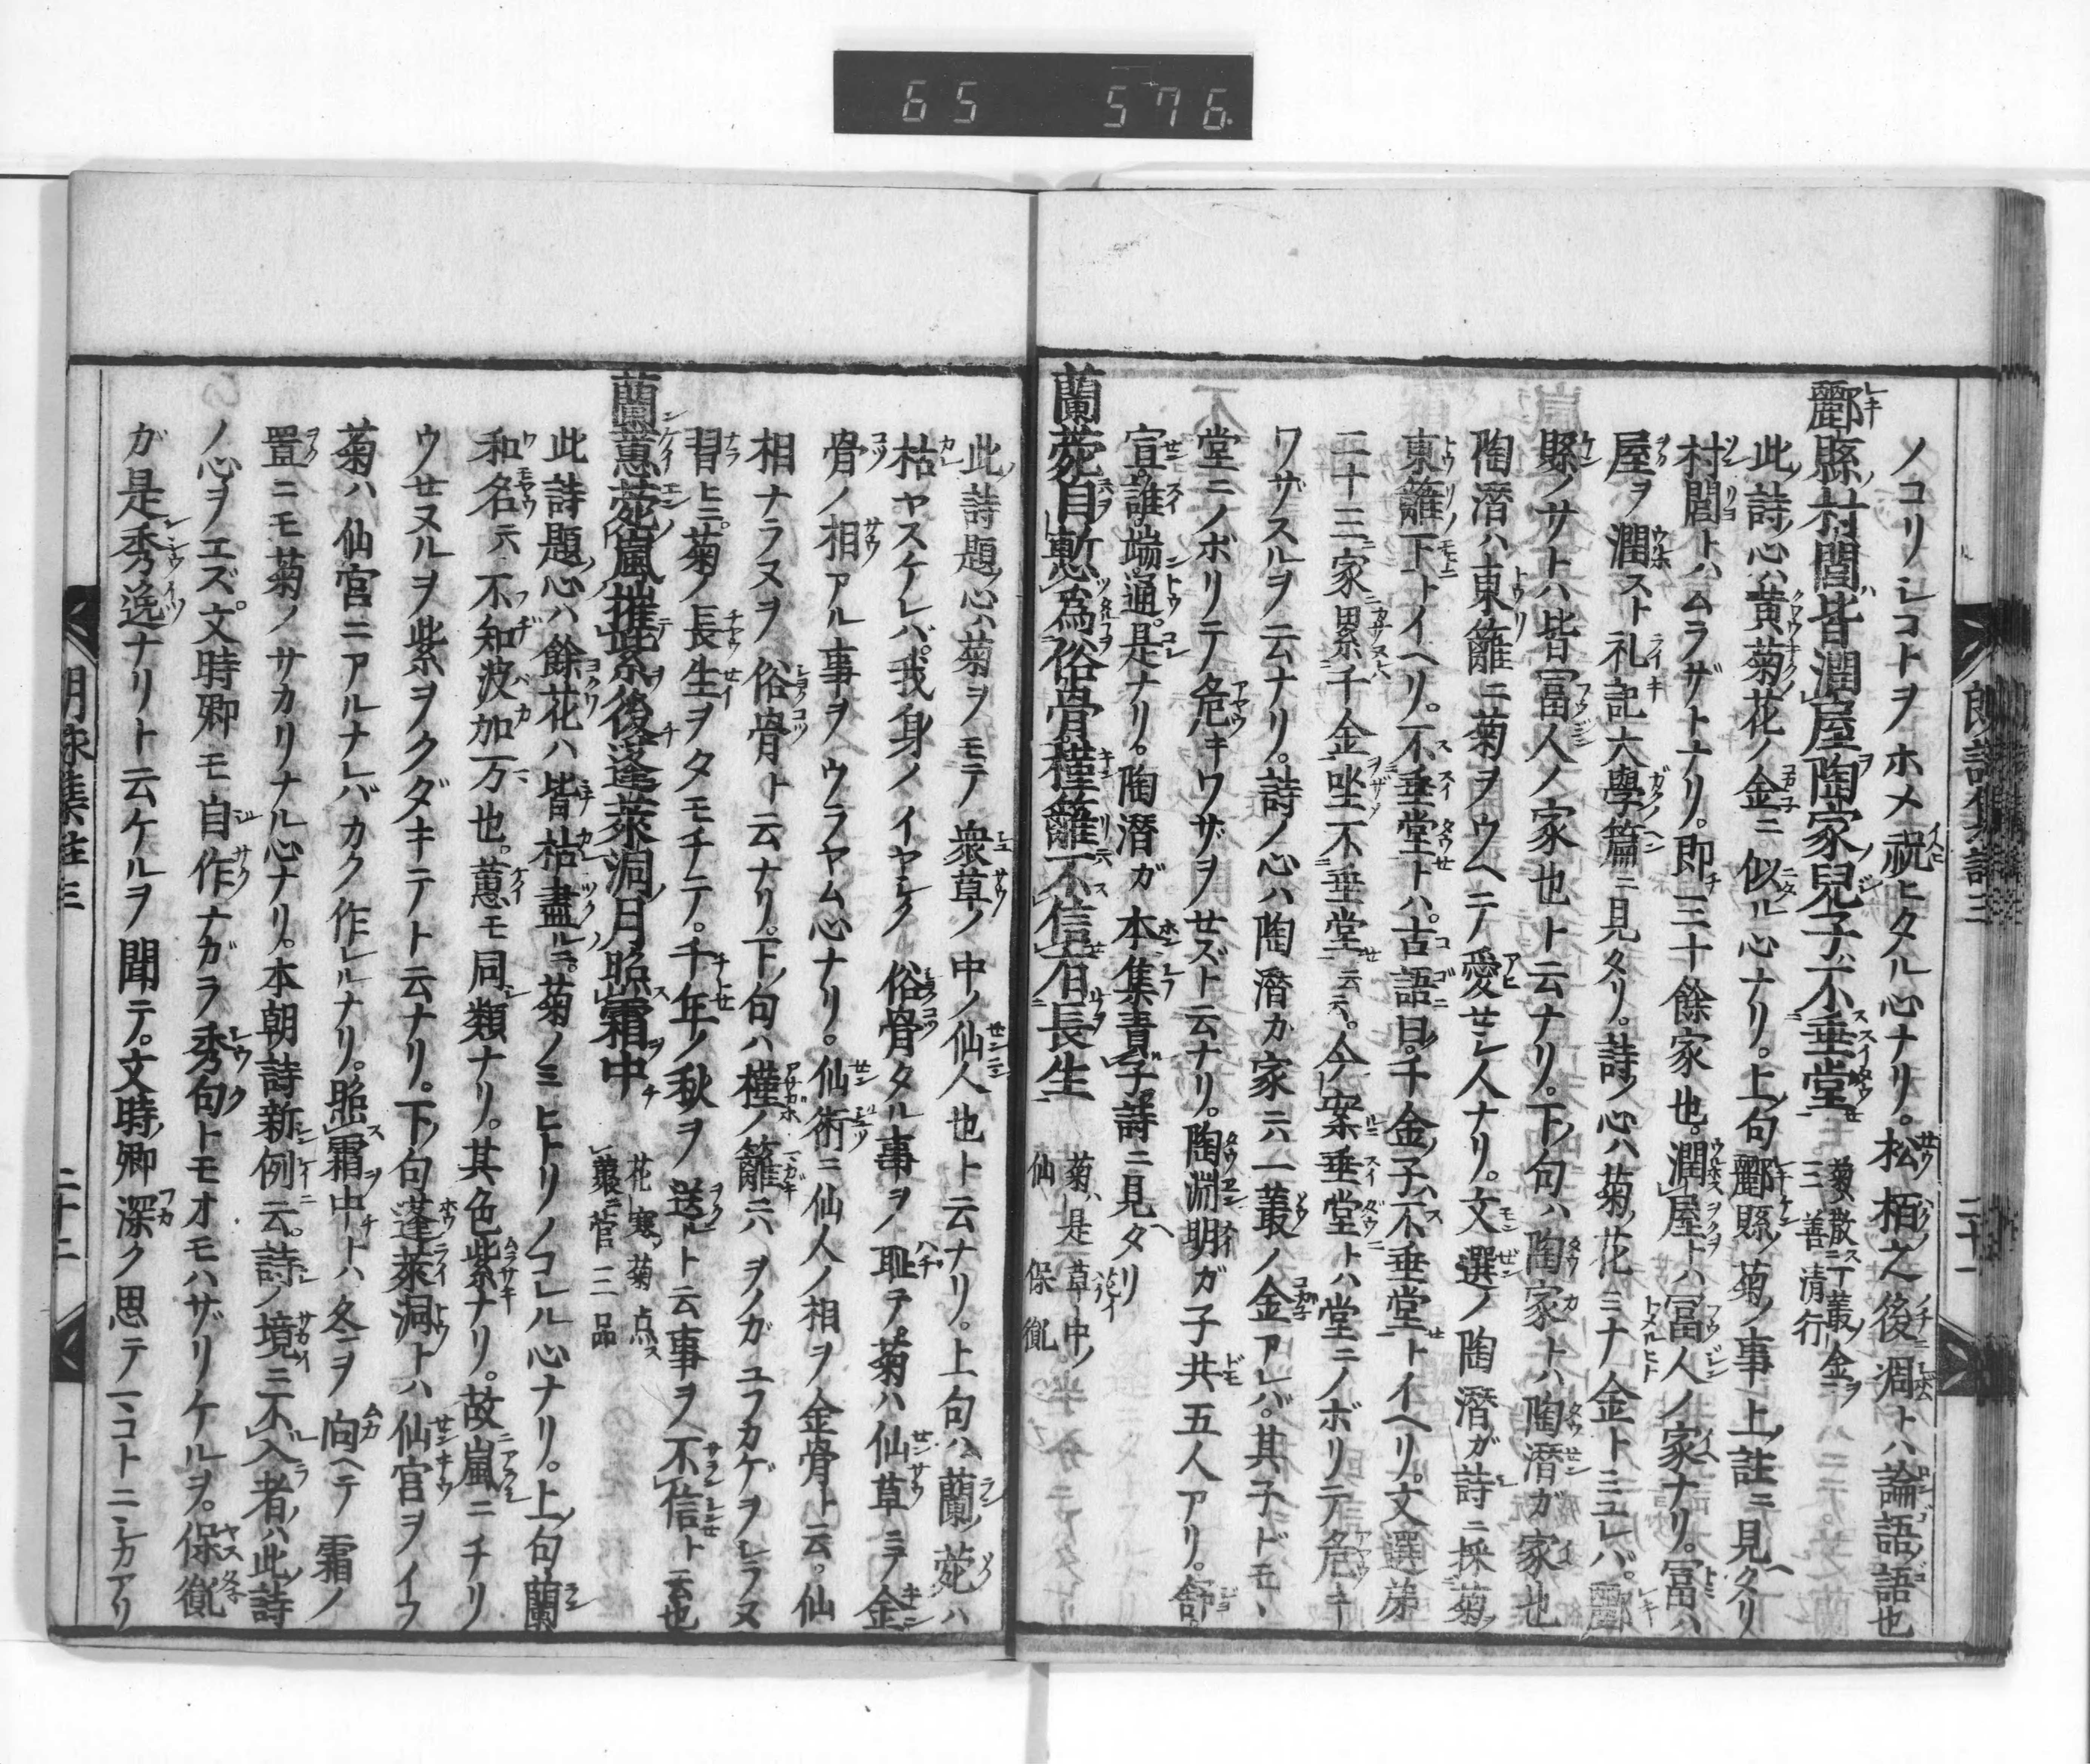 65 576
朗詠集註三
二十一
ノコリシコトヲホメ祝ヒタル心ナリ。松栢之後凋トハ論語ノ語也
酈縣村閭皆潤屋陶家兒子不垂堂 菊散一叢金ヲ 三善清行
此詩ノ心ハ黄菊花ノ金ニ似ル心ナリ。上句酈縣ノ菊ノ事上ノ註ニ見ヘタリ
村閭トハムラザトナリ。即三十餘家也。潤屋トハ冨人ノ家ナリ。冨ハ
屋ヲ潤スト礼記大學篇ニ見タリ。詩ノ心ハ菊ノ花ミナ金トミユレバ。酈
縣ノサトハ皆冨人ノ家也ト云ナリ。下ノ句ハ陶家トハ陶潜ガ家也
陶潜ハ東籬ニ菊ヲウヘニテ愛セシ人ナリ。文選ノ陶潜ガ詩ニ採菊ヲ
東籬ノ下トイヘリ。不垂堂トハ。古語曰。千金ノ子ハ不垂堂トイヘリ。文選第
二十三家累千金坐不垂堂云云。今案垂堂トハ堂ニノボリテ危キ
ワザスルヲ云ナリ。詩ノ心ハ陶潜カ家ニハ一叢ノ金アレバ。其子ドモヽ
堂ニノボリテ危キワザヲセズト云ナリ。陶淵明ガ子共五人アリ。舒。
宣。誰。端。通。是ナリ。陶潜ガ本集責子詩ニ見ヘタリ
蘭菀自慙為俗骨槿籬不信有長生 菊ハ是草ノ中ノ仙 保胤
此詩題心ハ菊ヲモテ衆草ノ中ノ仙人也ト云ナリ。上句ハ蘭ノ菀ハ
枯ヤスケレバ。我身ノイヤシク俗骨タル事ヲノ耻テ。菊ハ仙草ニテ金
骨ノ相アル事ヲウラヤム心ナリ。仙術ニ仙人ノ相ヲ金骨ト云。仙
相ナラヌヲ俗骨ト云ナリ。下ノ句ハ槿ノ籬ニハヲノガユフカゲヲシラヌ
習ヒニ。菊ノ長生ヲタモチテ。千年ノ秋ヲ送ルト云事ヲ不信ト云也
蘭蕙菀嵐摧紫後蓬萊洞月照霜中 花寒菊点叢 菅三品
此詩題心ハ餘花ハ皆枯盡ルニ。菊ノミヒトリノコレル心ナリ。上句蘭
和名云不知波加万也。蕙モ同類ナリ。其色紫ナリ。故嵐ニチリ
ウセヌルヲ紫ヲクダキテト云ナリ。下句蓬萊洞トハ仙官ヲイフ
菊ハ仙宮ニアルナレバカク作レルナリ。照霜中トハ冬ヲ向ヘテ霜ノ
置ニモ菊ノサカリナル心ナリ。本朝詩新例云。詩ノ境ニ不入者ハ此詩
ノ心ヲエズ。文時卿モ自作ナガラ秀句トモオモハザリケルヲ。保胤
ガ是秀逸ナリト云ケルヲ聞テ。文時卿深ク思テマコトニシカアリ
朗詠集註三
二十二